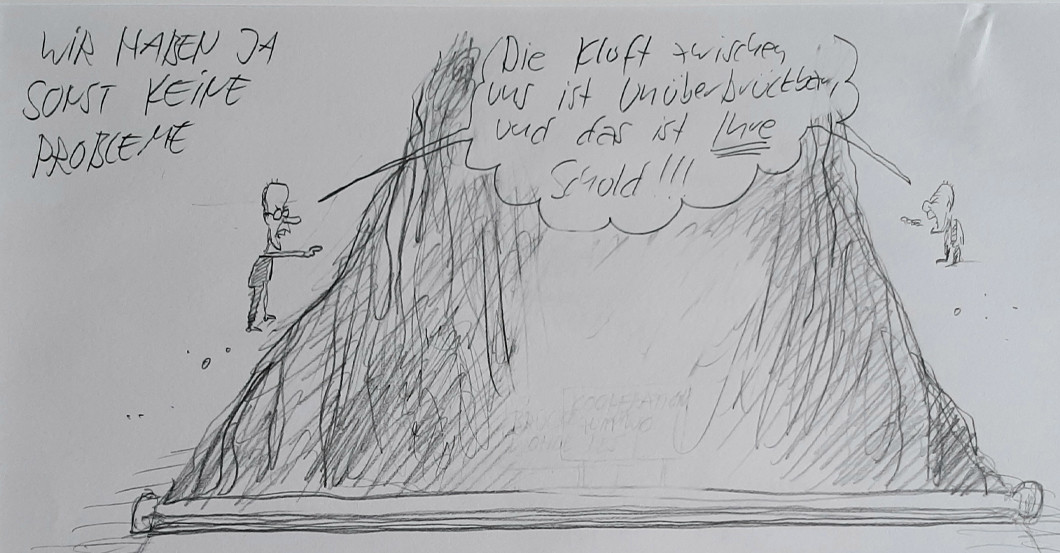 WIR HABEN JA
SONST KEINE
PROBLEME
Die Kluft zwischen
uns ist Unüberbrückbar
und das ist Ihre
Schuld!!!
KOOPERATION